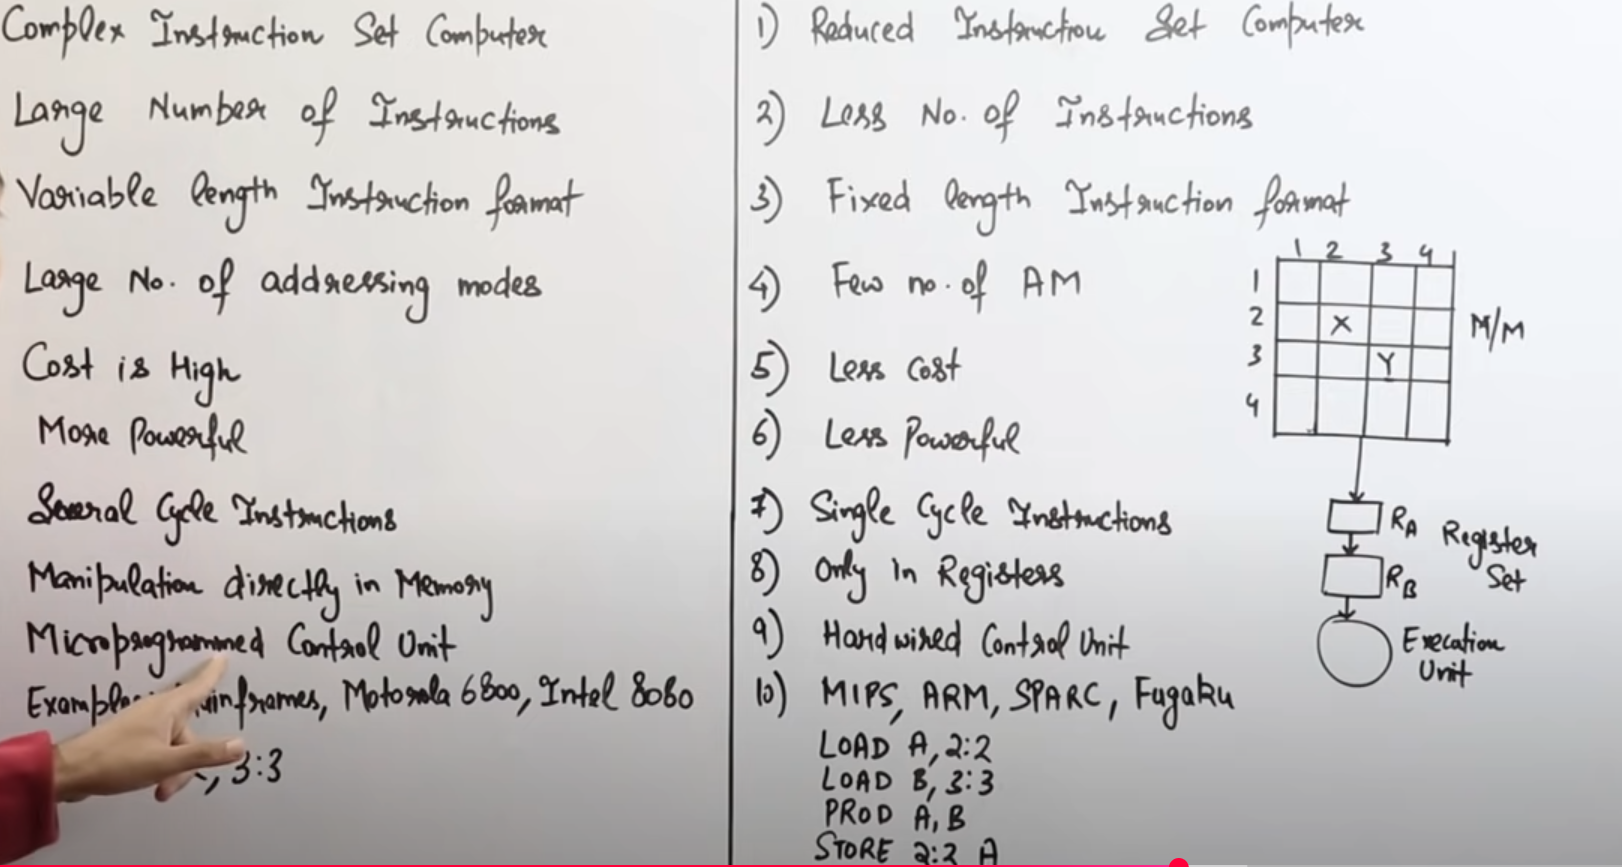 Complex Instruction Set Computer
Large Number of Instructions
Variable length Instruction format
Large No. of addressing modes
Cost is High
More Powerful
Several Cycle Instructions
Manipulation directly in Memory
Microprogrammed Control Unit
Motorola 6800, Intel 8080
, 3:3
1) Reduced Instruction Set Computer
2) Less No. of Instructions
3) Fixed length Instruction format
4) Few no. of AM
5) Less cost
6) Less Powerful
7) Single Cycle Instructions
8) Only in Registers
9) Hardwired Control Unit
10) MIPS, ARM, SPARC, Fugaku
LOAD A, 2:2
LOAD B, 3:3
PROD A, B
STORE 2:2 A
1 2 3 4
1
2 X
3 Y
4
M/M
RA
RB
Register
Set
Execution
Unit